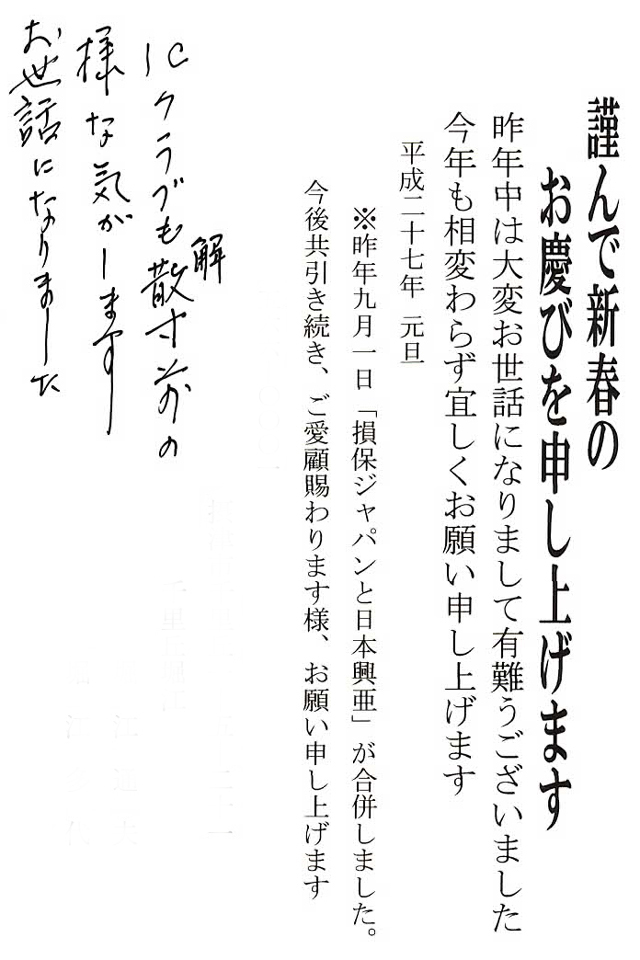 謹んで新春の
お慶びを申し上げます
昨年中は大変お世話になりまして有難うございました
今年も相変わらず宜しくお願い申し上げます
平成二十七年 元旦
※昨年九月一日「損保ジャパンと日本興亜」が合併しました。
今後共引き続き、ご愛顧賜わります様、お願い申し上げます
ICクラブも解散寸前の
様な気がします
お世話になりました